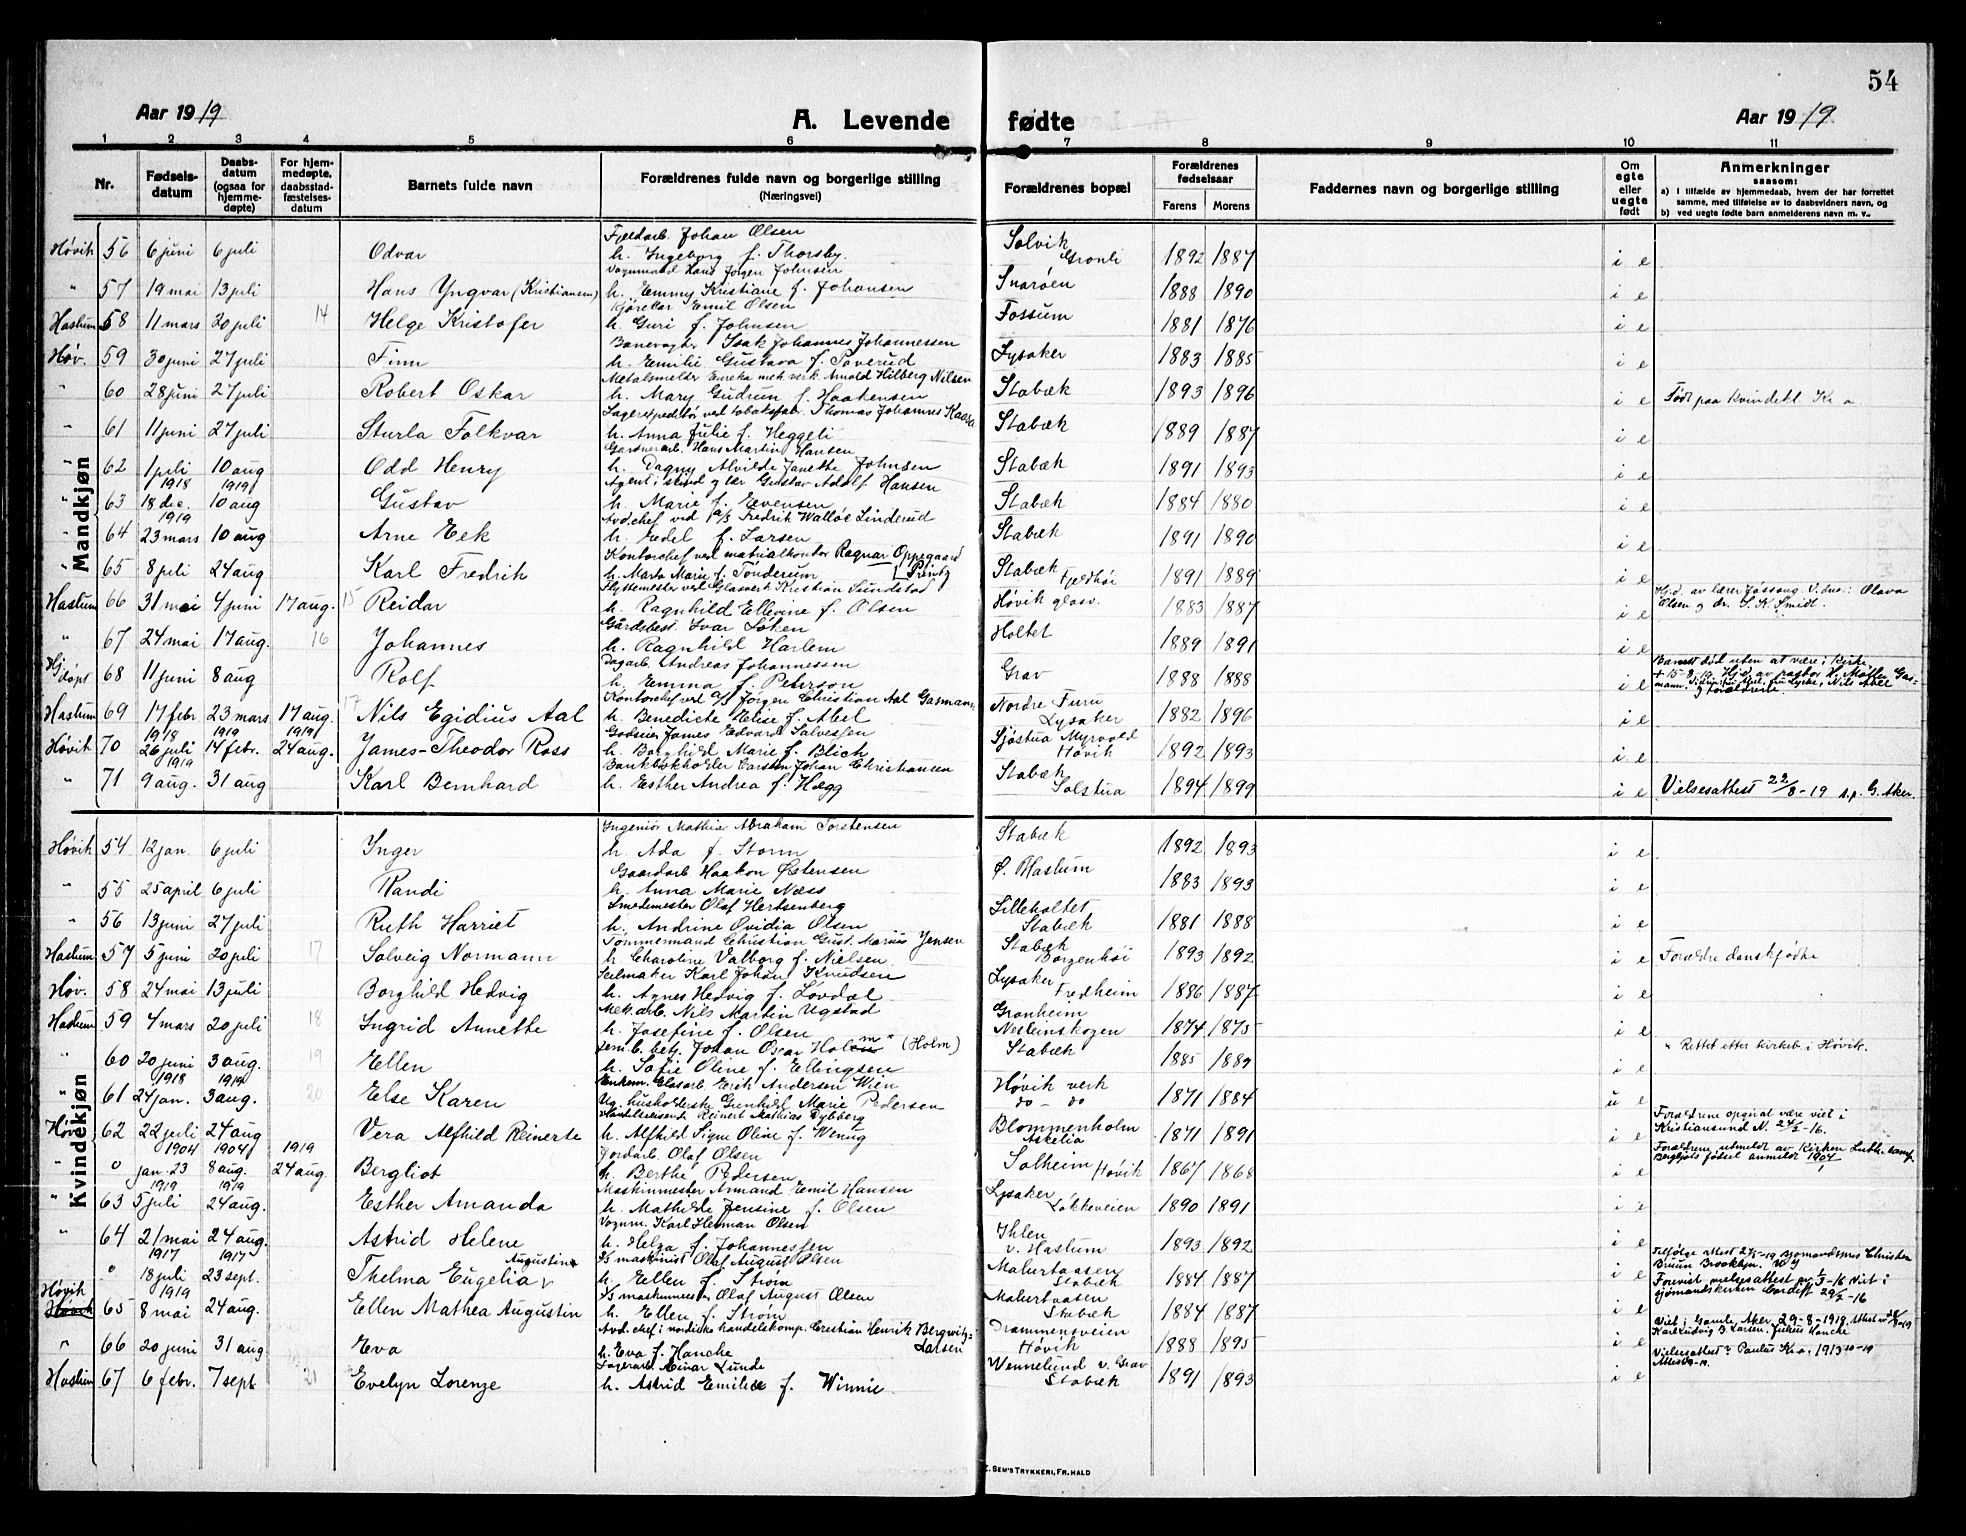 54
Aar 1919 A. Levende fødte Aar 1919
1 2 3 4 5 6 7 8 9 10 11
Nr. Fødselsdatum Daabsdatum (ogsaa for hjemmedøpte) For hjemmedøpte, daabsstadfæstelsesdatum Barnets fulde navn Forældrenes fulde navn og borgerlige stilling (Næringsvei) Forældrenes bopæl Forældrenes fødselsaar Farens Morens Faddernes navn og borgerlige stilling Om egte eller uegte født Anmerkninger saasom:
a) I tilfælde av hjemmedaab, hvem der har forrettet samme, med tilføielse av to daabsvidners navn, og
b) ved uegte fødte barn anmelderens navn m. v..
Mandkjøn
Fjeldarb. Johan Olsen
Høvik 56 6 juni 6 juli Odvar h. Ingeborg f. Thorsby. Solvik Gronli 1892 1887 i e
Vognmand Hans Jørgen Johnsen
" 57 19 mai 13 juli Hans Yngvar (Kristiansen) h. Emmy Kristiane f. Johansen Snarøen 1888 1890 i e
Kjørekar Emil Olsen
Haslum 58 11 mars 20 juli 14 Helge Kristofer h. Guri f. Johnsen Fossum 1881 1876 i e
Banevogter Isak Johannes Johannessen
Høv. 59 30 juni 27 juli Finn h. Emilie Gustava f. Poverud Lysaker 1883 1885 i e
Metalsmelder Eureka mek. verk. Arnold Hilberg Nilsen
" 60 28 juni 27 juli Robert Oskar h. Mary Gudrun f. Haakensen Stabæk 1893 1896 i e Født paa Kvindekl Kr a
Lagerexpeditør ved tobaksfabr. Thomas Johannes Kaasa
" 61 11 juni 27 juli Sturla Folkvar h. Anna Julie f. Heggeli Stabæk 1889 1887 i e
Gardnerarb. Hans Martin Hansen
" 62 1 juli 10 aug Odd Henry h. Dagny Alvilde Janette Johnsen Stabæk 1891 1893 i e
1918 1919 Agent i skind og lær Gustav Adolf Hansen
" 63 18 dec. 10 aug Gustav h. Marie f. Evensen Stabæk 1884 1880 i e
1919 Avd.chef ved A/S Fredrik Walløe Linderud
" 64 23 mars 10 aug Arne Eek h. Edel f. Larsen Stabæk 1891 1890 i e
Kontorchef ved matrialkontor Ragnar Oppegaard
" 65 8 juli 24 aug Karl Fredrik h. Marta Marie f. Tønderum [Printz Stabæk Fjeldhøi 1891 1889 i e
Hyttemester ved Glasverk Kristian Sundstad
Haslum 66 31 mai 4 juni 17 aug. 15 Reidar h. Ragnhild Ellevine f. Olsen Høvik glasv. 1883 1887 i e Hj.d. av lærer Jøssang. Vidner: Olava Olsen og dr. S. K. Smidt.
Gårdsbest. Ivar Løken
" 67 24 mai 17 aug. 16 Johannes h. Ragnhild Harlem Holtet 1889 1891 i e
Dagarb. Andreas Johannessen
Hjdøpt 68 11 juni 8 aug Rolf h. Emma f. Peterson Grav 1888 1888 i e Barnet død uten at være i kirke. + 15-8-19. Hj.d. av pastor H. Møller Gasmann.
Kontorchef ved A/S Jørgen Christian Aal Gasmann
Haslum 69 17 febr 23 mars 17 aug. 17 Nils Egidius Aal h. Benedicte Elise f. Abel Nordre Furu Lysaker 1882 1896 i e
1918 1919 1919 Godseier James Edvard Salvessen
Høvik 70 26 juli 14 febr. 24 aug. James-Theodor Ross h. Borghild Marie f. Blich Sjøstua Myrvold Høvik 1892 1893 i e
1919 Bankbokholder Carsten Johan Christiansen
" 71 9 aug. 31 aug Karl Bernhard h. Esther Andrea f. Hægg Stabæk Solstua 1894 1899 i e Vielsesattest 22/8-19 s.p. G. Aker.
Kvindekjøn
Ingeniør Mathis Abraham Torstensen
Høvik 54 12 jan. 6 juli Inger h. Ada f. Storm Stabæk 1892 1893 i e
Gaardarb Haakon Østensen
" 55 25 april 6 juli Randi h. Anna Marie Næss Ø. Haslum 1883 1893 i e
Smedmester Olaf Hertsenberg
" 56 13 juni 27 juli Ruth Harriet h. Andrine Ovidia Olsen Lilleholtet Stabæk 1881 1888 i e
Tømmermand Christian Gust. Marius Jensen
Haslum 57 5 juni 20 juli 17 Solveig Normann h. Charoline Valborg f. Nielsen Stabæk Borgenhøi 1893 1892 i e Forældre danskfødte
Seilmaker Karl Johan Knudsen
Høv. 58 24 mai 13 juli Borghild Hedvig h. Agnes Hedvig f. Løvdal Lysaker Fredheim 1886 1887 i e
Mek.arb. Nils Martin Ugstad
Haslum 59 4 mars 20 juli 18 Ingrid Annette h. Josefine f. Olsen Granheim Nesteinskogen 1874 1875 i e
Jernb. betj. Johan Oscar Holm (Holm)
" 60 20 juni 3 aug. 19 Ellen h. Sofie Oline f. Ellingsen Stabæk 1885 1889 i e " Rettet efter kirkeb. i Høvik.
1918 1919 Enkem. Glasarb. Erik Andersen Wien
" 61 24 jan. 3 aug. 20 Else Karen Ug. husholderske Grenhild Marie Pedersen Høvik verk do - do 1871 1884 u e
Handelsreisende Reinert Mathias Dybberg
Høv. 62 22 juli 24 aug Vera Alfhild Reinerte h. Alfhild Signe Oline f. Wenug Blommenholm Askelia 1871 1891 i e Forældrene opgivet være viet i Kristiansund N. 24/3-16.
1904 1904 1919 Jordarb. Olaf Olsen
" " jan. 23 8 aug. 24 aug. Bergliot h. Berthe Pedersen Solheim Høvik 1867 1868 i e Forældrene utmeldt av kirken Luth. samf. Bergljots fødsel anmeldt 1904
1919 1919 Maskinmester Armand Emil Hansen
" 63 5 juli 24 aug. Esther Amanda h. Mathilde Jensine f. Olsen Lysaker Løkkeveien 1890 1891 i e
Vognm. Karl Herman Olsen
" 64 21 mai 24 aug. Astrid Helene h. Helga f. Johannessen Ihlen v. Haslum 1893 1892 i e
1917 1917 Augustine Fs maskinist Olaf August Olsen
" 18 juli 23 sept. Thelma Eugelia h. Ellen f. Strøm Malurtaasen Stabæk 1884 1887 i e Ifølge attest 24/5-19 Sjømandspres Christen Bruun Brooklyn. N Y
1919 Fs maskinmester Olaf August Olsen
Høvik Høvik 65 8 mai 24 aug. Ellen Mathea Augustin h. Ellen f. Strøm Malurtaasen Stabæk 1884 1887 i e Forevist vielsesattest Viet i sjømandskirken Cardiff 29/2-16
Avd. chef i nordiske handelskomp. Crestian Henrik Bergwitz-Larsen
" 66 20 juni 31 aug Eva h. Eva f. Hancke Drammensveien Høvik 1888 1895 i e Viet i Gamle Aker 29-8-1919. Karl Ludvig B Larsen. Julius Hancke
Lagerarb. Einar Lunde
Haslum 67 6 febr. 7 sept 21 Evelyn Lorenze h. Astrid Emilie f. Winnie Wennelund v. Grav Stabæk 1891 1893 i e Vielsesattest Paulus Kr.a. 1913
E. SEM'S TRYKKERI, FR.HALD